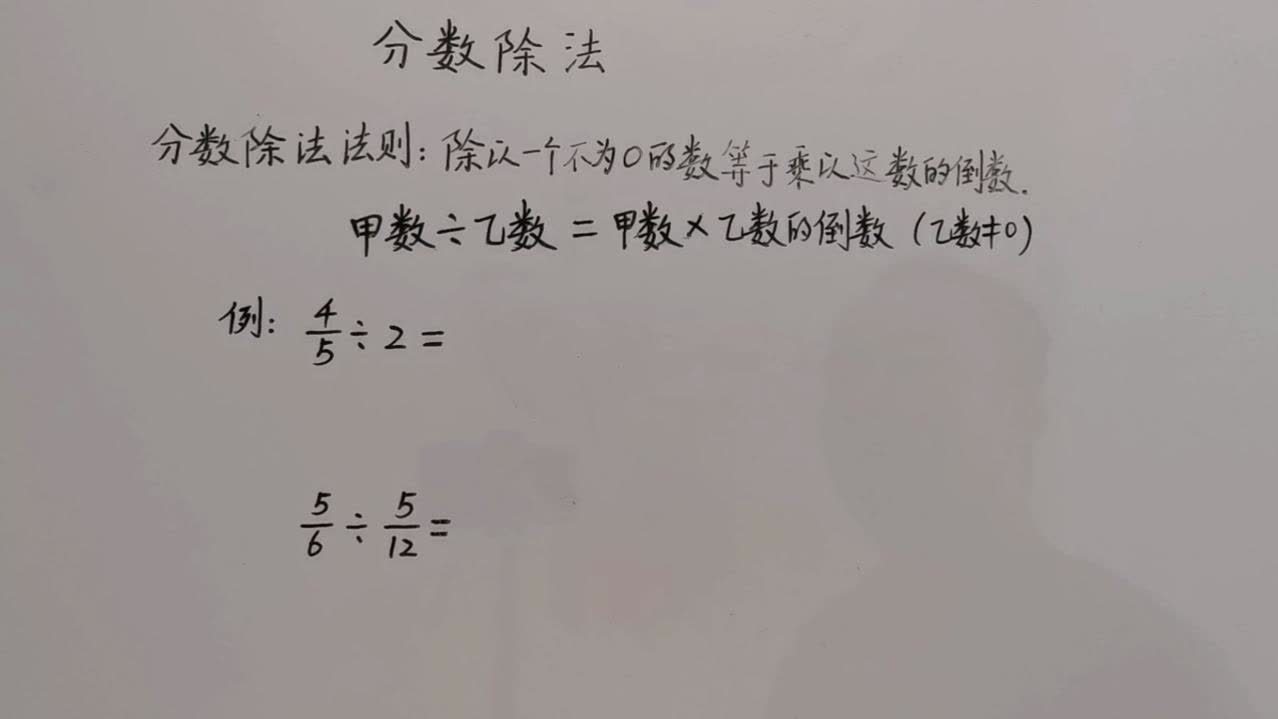 分数除法
分数除法法则：除以一个不为0的数等于乘以这数的倒数.
甲数÷乙数＝甲数×乙数的倒数（乙数≠0）
例： 4/5 ÷ 2 =
5/6 ÷ 5/12 =